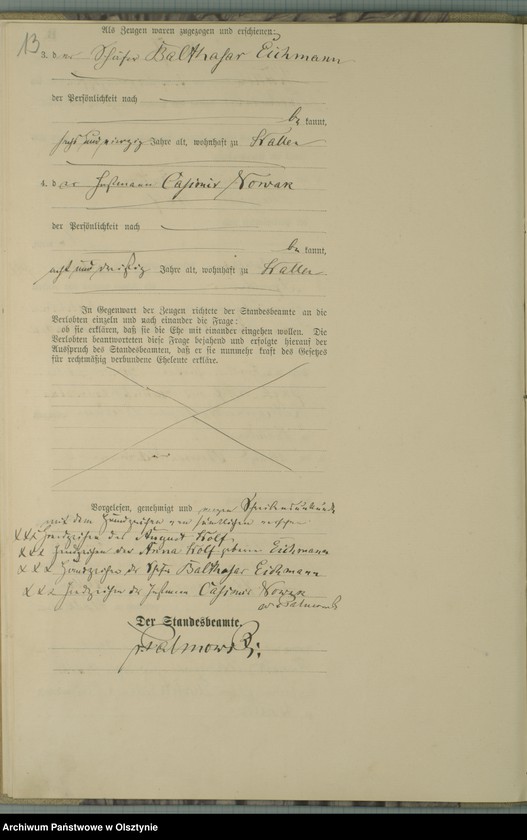 13
Als Zeugen waren zugezogen und erschienen:
3. der Schäfer Balthasar Eichmann
der Persönlichkeit nach
be kannt,
sechs und vierzig Jahre alt, wohnhaft zu Stallen
4. der Instmann Casimir Nowak
der Persönlichkeit nach
be kannt,
acht und dreißig Jahre alt, wohnhaft zu Stallen
In Gegenwart der Zeugen richtete der Standesbeamte an die
Verlobten einzeln und nach einander die Frage:
ob sie erklären, daß sie die Ehe mit einander eingehen wollen. Die
Verlobten beantworteten diese Frage bejahend und erfolgte hierauf der
Ausspruch des Standesbeamten, daß er sie nunmehr kraft des Gesetzes
für rechtmäßig verbundene Eheleute erkläre.
Vorgelesen, genehmigt und wegen Schreibensunkunde
mit dem Handzeichen von sämtlichen versehen
XXX Handzeichen des August Kolf.
XXX Handzeichen der Anna Kolf geborne Eichmann
XXX Handzeichen des Schäfer Balthasar Eichmann
XXX Handzeichen des Instmann Casimir Nowak
Der Standesbeamte.
Archiwum Państwowe w Olsztynie